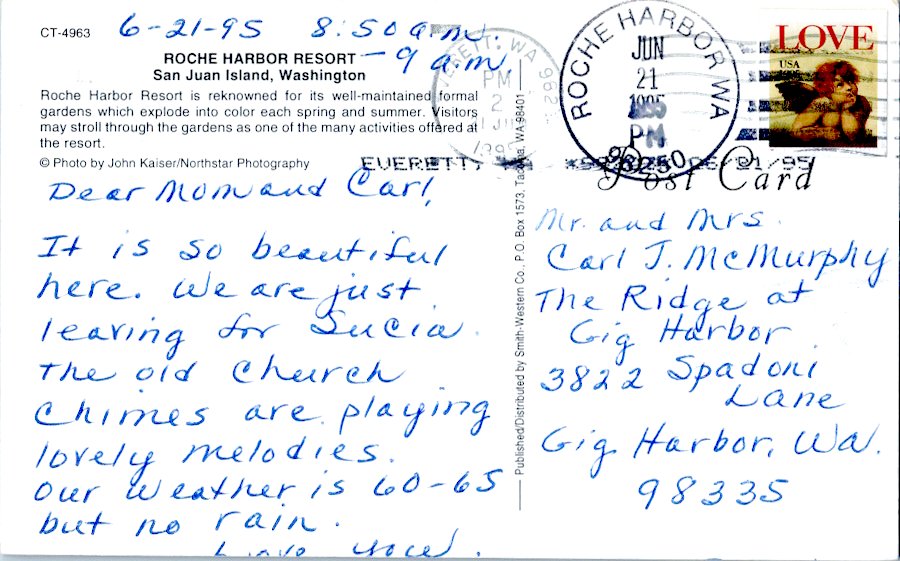 CT-4963
6-21-95 8:50 a.m. - 9 a.m.
ROCHE HARBOR RESORT
San Juan Island, Washington
Roche Harbor Resort is reknowned for its well-maintained formal
gardens which explode into color each spring and summer. Visitors
may stroll through the gardens as one of the many activities offered at
the resort.
© Photo by John Kaiser/Northstar Photography
Dear Mom and Carl,
It is so beautiful
here. We are just
leaving for Sucia.
The old church
chimes are playing
lovely melodies.
Our weather is 60-65
but no rain.
Love you.
Published/Distributed by Smith-Western Co., P.O. Box 1573, Tacoma, WA 98401
EVERETT, WA
PM
EVERETT,
ROCHE HARBOR WA
JUN
21
1995
PM
98250
LOVE
USA
Post Card
Mr. and Mrs.
Carl J. McMurphy
The Ridge at
Gig Harbor
3822 Spadoni
Lane
Gig Harbor, Wa.
98335